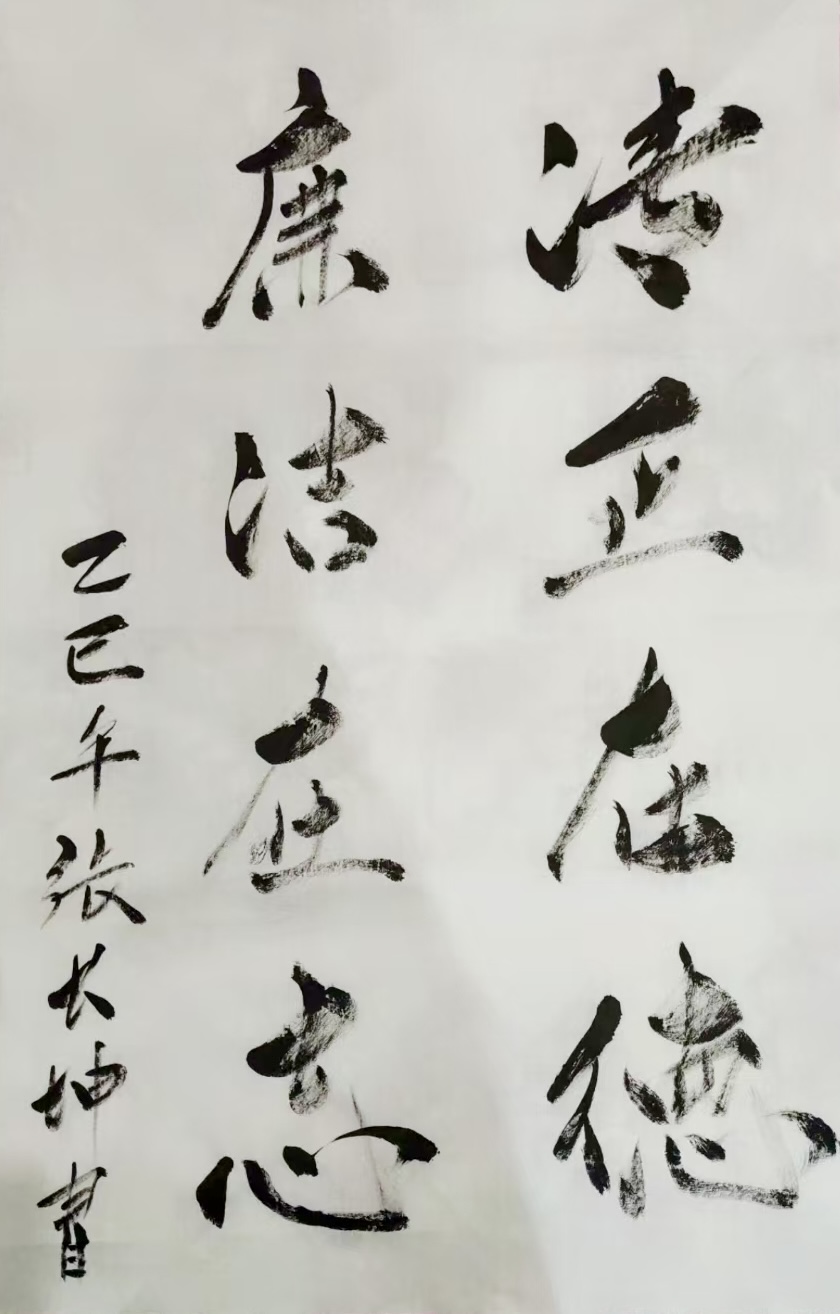 清正在德
廉洁在志
乙巳年张长坤書